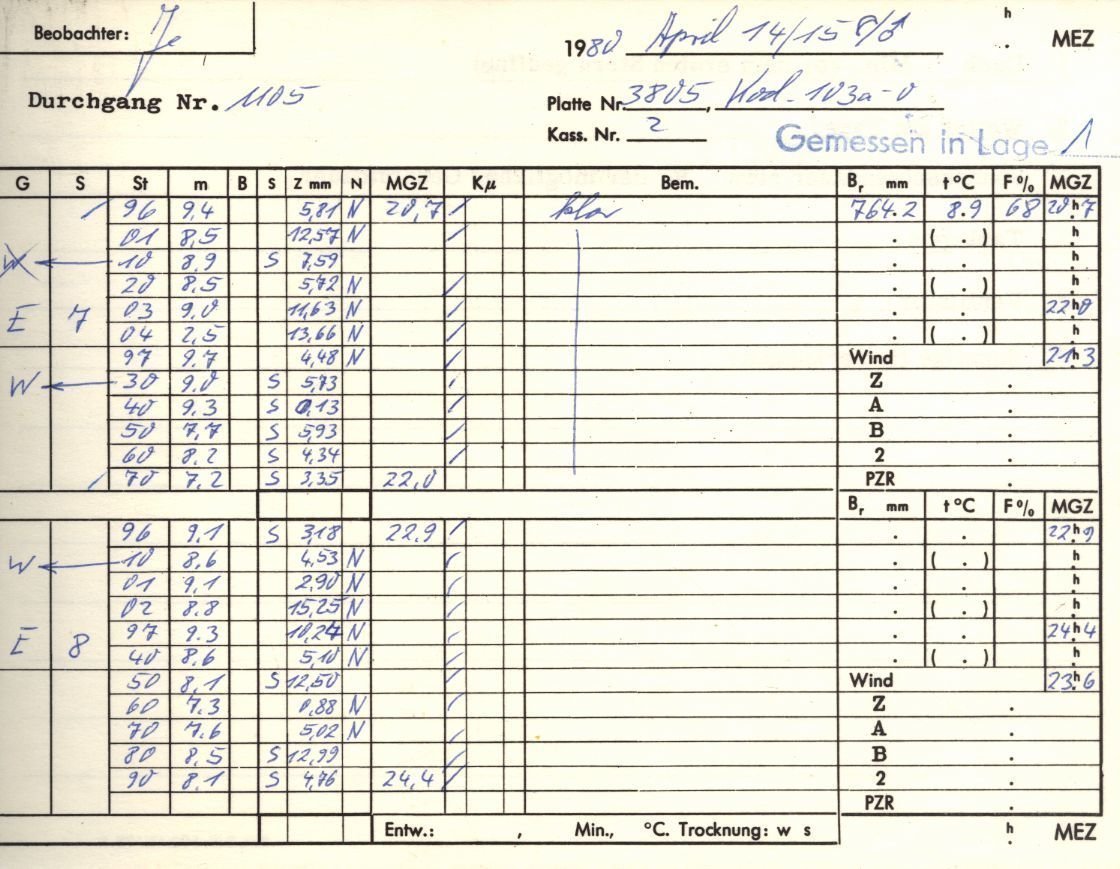 Beobachter: Je
h
. MEZ
1980 April 14/15
Durchgang Nr. 1105
Platte Nr. 3805, Kod. 103a-0
Kass. Nr. 2
Gemessen in Lage 1
G S St m B S Z mm N MGZ Kµ Bem. Br mm t °C F % MGZ
/ 96 9,4 5,81 N 20,7 / klar 764.2 8.9 68 20h7
01 8,5 12,57 N / . ( . ) h
W ← 10 8.9 S 7,59 . . h
20 8.5 5,72 N / . ( . ) h
E 7 03 9,0 11,63 N / . . 22h0
04 2,5 13,66 N / . ( . ) h
97 9.7 4,48 N / Wind 21h3
W ← 30 9.0 S 5,73 / Z .
40 9.3 S 0,13 / A .
50 7,7 S 5,93 / B .
60 8,2 S 4,34 / 2 .
/ 70 7,2 S 3,35 22,0 PZR .
Br mm t °C F % MGZ
96 9,1 S 3,18 22,9 / . . 22h9
W ← 10 8,6 4,53 N / . ( . ) h
01 9,1 2,90 N / . . h
02 8.8 15,25 N / . ( . ) h
E 8 97 9.3 10,27 N / . . 24h4
40 8,6 5,10 N / . ( . ) h
50 8,1 S 12,50 / Wind 23h6
60 7.3 0,88 N / Z .
70 7,6 5,02 N / A .
80 8,5 S 12,99 / B .
90 8,1 S 4,76 24,4 / 2 .
PZR .
Entw.: , Min., °C. Trocknung: w s h
. MEZ